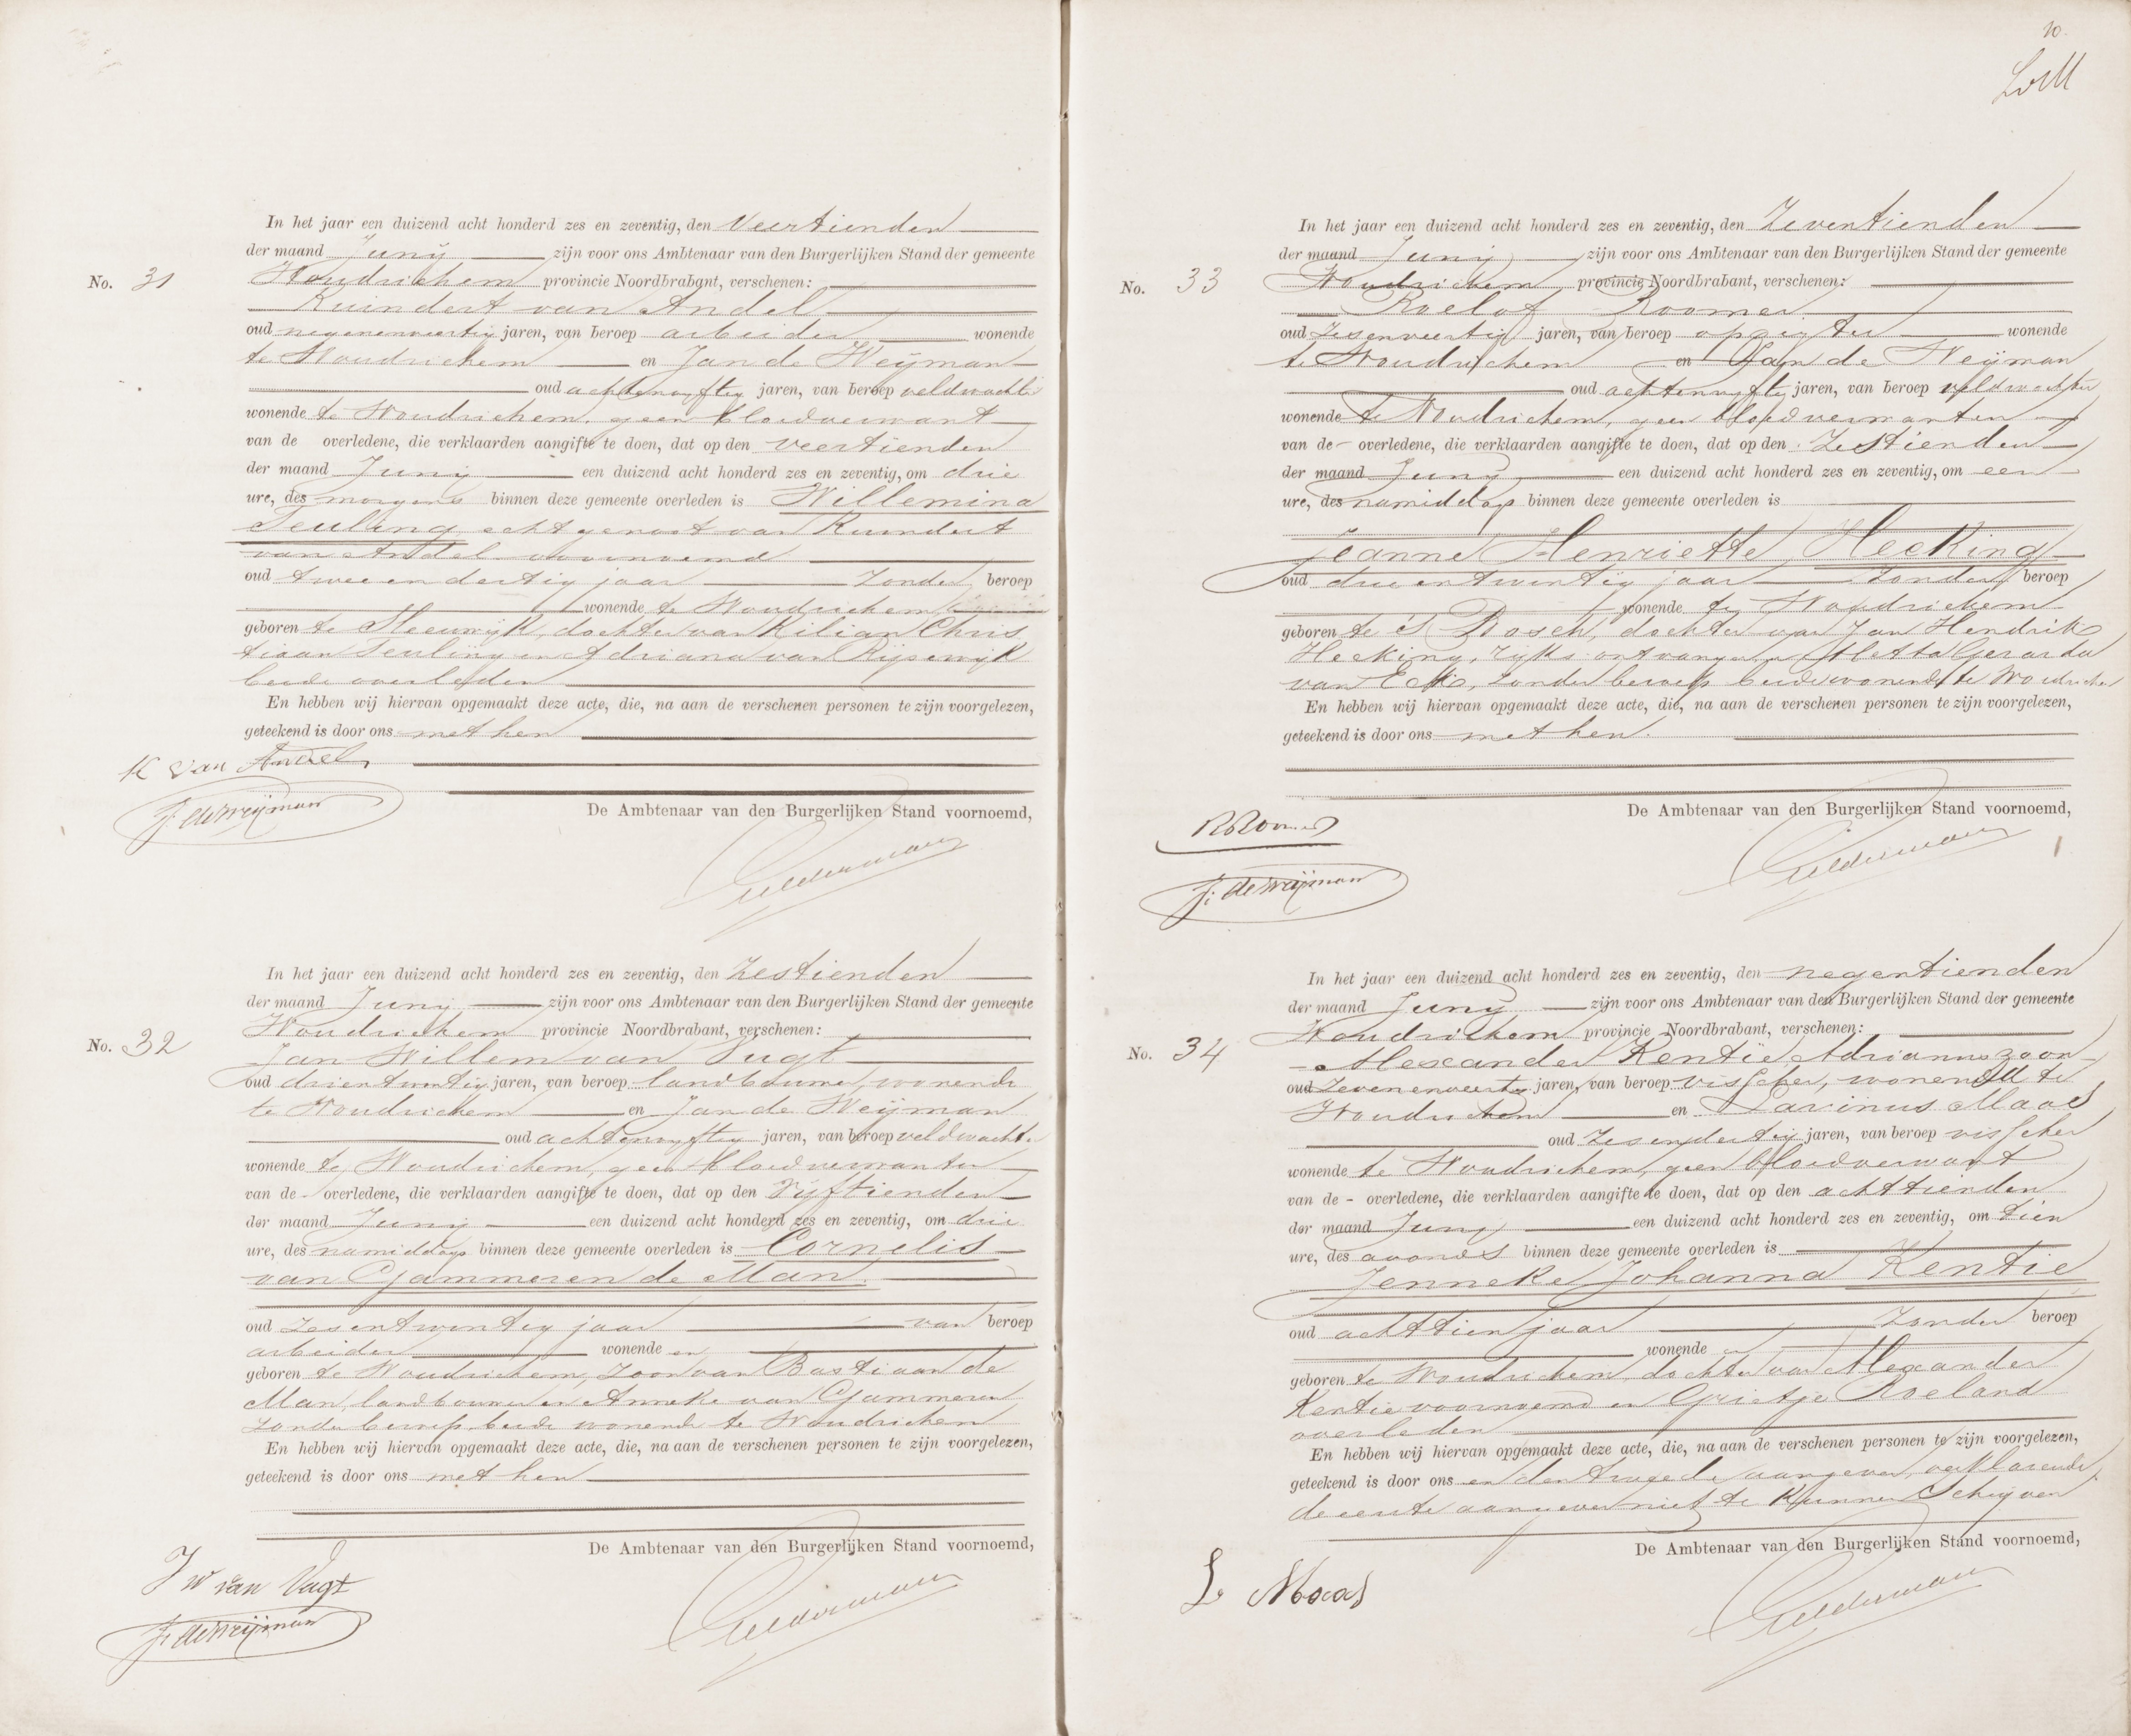 In het jaar een duizend acht honderd zes en zeventig, den Veertienden
der maand Juny zijn voor ons Ambtenaar van den Burgerlijken Stand der gemeente
No. 31 Woudrichem provincie Noordbrabant, verschenen:
Kuindert van Andel
oud negenenveertig jaren, van beroep arbeider wonende
te Woudrichem en Jan de Weijman
oud achtenvyftig jaren, van beroep veldwachter
wonende te Woudrichem, geen bloedverwant
van de overledene, die verklaarden aangifte te doen, dat op den veertienden
der maand Juny een duizend acht honderd zes en zeventig, om drie
ure, des morgens binnen deze gemeente overleden is Willemina
Teuling echtgenoot van Kuindert
van Andel voornoemd
oud twee en dertig jaar Zonder beroep
wonende te Woudrichem
geboren te Sleeuwijk, dochter van Kilian Chris
tiaan Teuling en Adriana van Rijswijk
beide overleden
En hebben wij hiervan opgemaakt deze acte, die, na aan de verschenen personen te zijn voorgelezen,
geteekend is door ons met hen
K van Andel
J. de Weijman
De Ambtenaar van den Burgerlijken Stand voornoemd,
Gelderman
In het jaar een duizend acht honderd zes en zeventig, den Zestienden
der maand Juny zijn voor ons Ambtenaar van den Burgerlijken Stand der gemeente
No. 32 Woudrichem provincie Noordbrabant, verschenen:
Jan Willem van Vugt
oud drientwintig jaren, van beroep landbouwer, wonende
te Woudrichem en Jan de Weijman
oud achtenvyftig jaren, van beroep veldwachter
wonende te Woudrichem, geen bloedverwanten
van de overledene, die verklaarden aangifte te doen, dat op den Vyftienden
der maand Juny een duizend acht honderd zes en zeventig, om drie
ure, des namiddags binnen deze gemeente overleden is Cornelis
van Gammeren de Man.
oud zesentwintig jaar van beroep
arbeider wonende en
geboren te Woudrichem, zoon van Bastiaan de
Man, landbouwer en Anneke van Gammeren
zonder beroep, beide wonende te Woudrichem
En hebben wij hiervan opgemaakt deze acte, die, na aan de verschenen personen te zijn voorgelezen,
geteekend is door ons met hen
De Ambtenaar van den Burgerlijken Stand voornoemd,
J W van Vugt
J. de Weijman
Gelderman
10.
In het jaar een duizend acht honderd zes en zeventig, den Zeventienden
der maand Juny zijn voor ons Ambtenaar van den Burgerlijken Stand der gemeente
No. 33 Woudrichem provincie Noordbrabant, verschenen:
Roelof Roomer
oud Zesenveertig jaren, van beroep opzigter wonende
te Woudrichem en Jan de Weijman
oud achtenvyftig jaren, van beroep veldwachter
wonende te Woudrichem, geen bloedverwanten
van de overledene, die verklaarden aangifte te doen, dat op den Zestienden
der maand Juny een duizend acht honderd zes en zeventig, om een
ure, des namiddags binnen deze gemeente overleden is
Jeanne Henriette Hecking
oud drie en twintig jaar Zonder beroep
wonende te Woudrichem
geboren te 's Bosch, dochter van Jan Hendrik
Hecking, rijks ontvanger en Metta Gerarda
van Eck, zonder beroep beide wonende te Woudrichem
En hebben wij hiervan opgemaakt deze acte, die, na aan de verschenen personen te zijn voorgelezen,
geteekend is door ons met hen.
De Ambtenaar van den Burgerlijken Stand voornoemd,
R Roomer
J. de Weijman
Gelderman
In het jaar een duizend acht honderd zes en zeventig, den negentienden
der maand Juny zijn voor ons Ambtenaar van den Burgerlijken Stand der gemeente
No. 34 Woudrichem provincie Noordbrabant, verschenen:
Alexander Kentie, Adrianuszoon
oud Zevenenveertig jaren, van beroep visscher, wonende te
Woudrichem en Lavinus Maas
oud Zesendertig jaren, van beroep visscher
wonende te Woudrichem, geen bloedverwant
van de - overledene, die verklaarden aangifte te doen, dat op den achttienden
der maand Juny een duizend acht honderd zes en zeventig, om tien
ure, des avonds binnen deze gemeente overleden is
Jenneke Johanna Kentie
oud achttien jaar Zonder beroep
wonende en
geboren te Woudrichem, dochter van Alexander
Kentie voornoemd en Grietje Roeland
overleden
En hebben wij hiervan opgemaakt deze acte, die, na aan de verschenen personen te zijn voorgelezen,
geteekend is door ons en den tweede aangever, verklarende
de eerste aangever niet te kunnen schrijven
De Ambtenaar van den Burgerlijken Stand voornoemd,
L. Maas
Gelderman